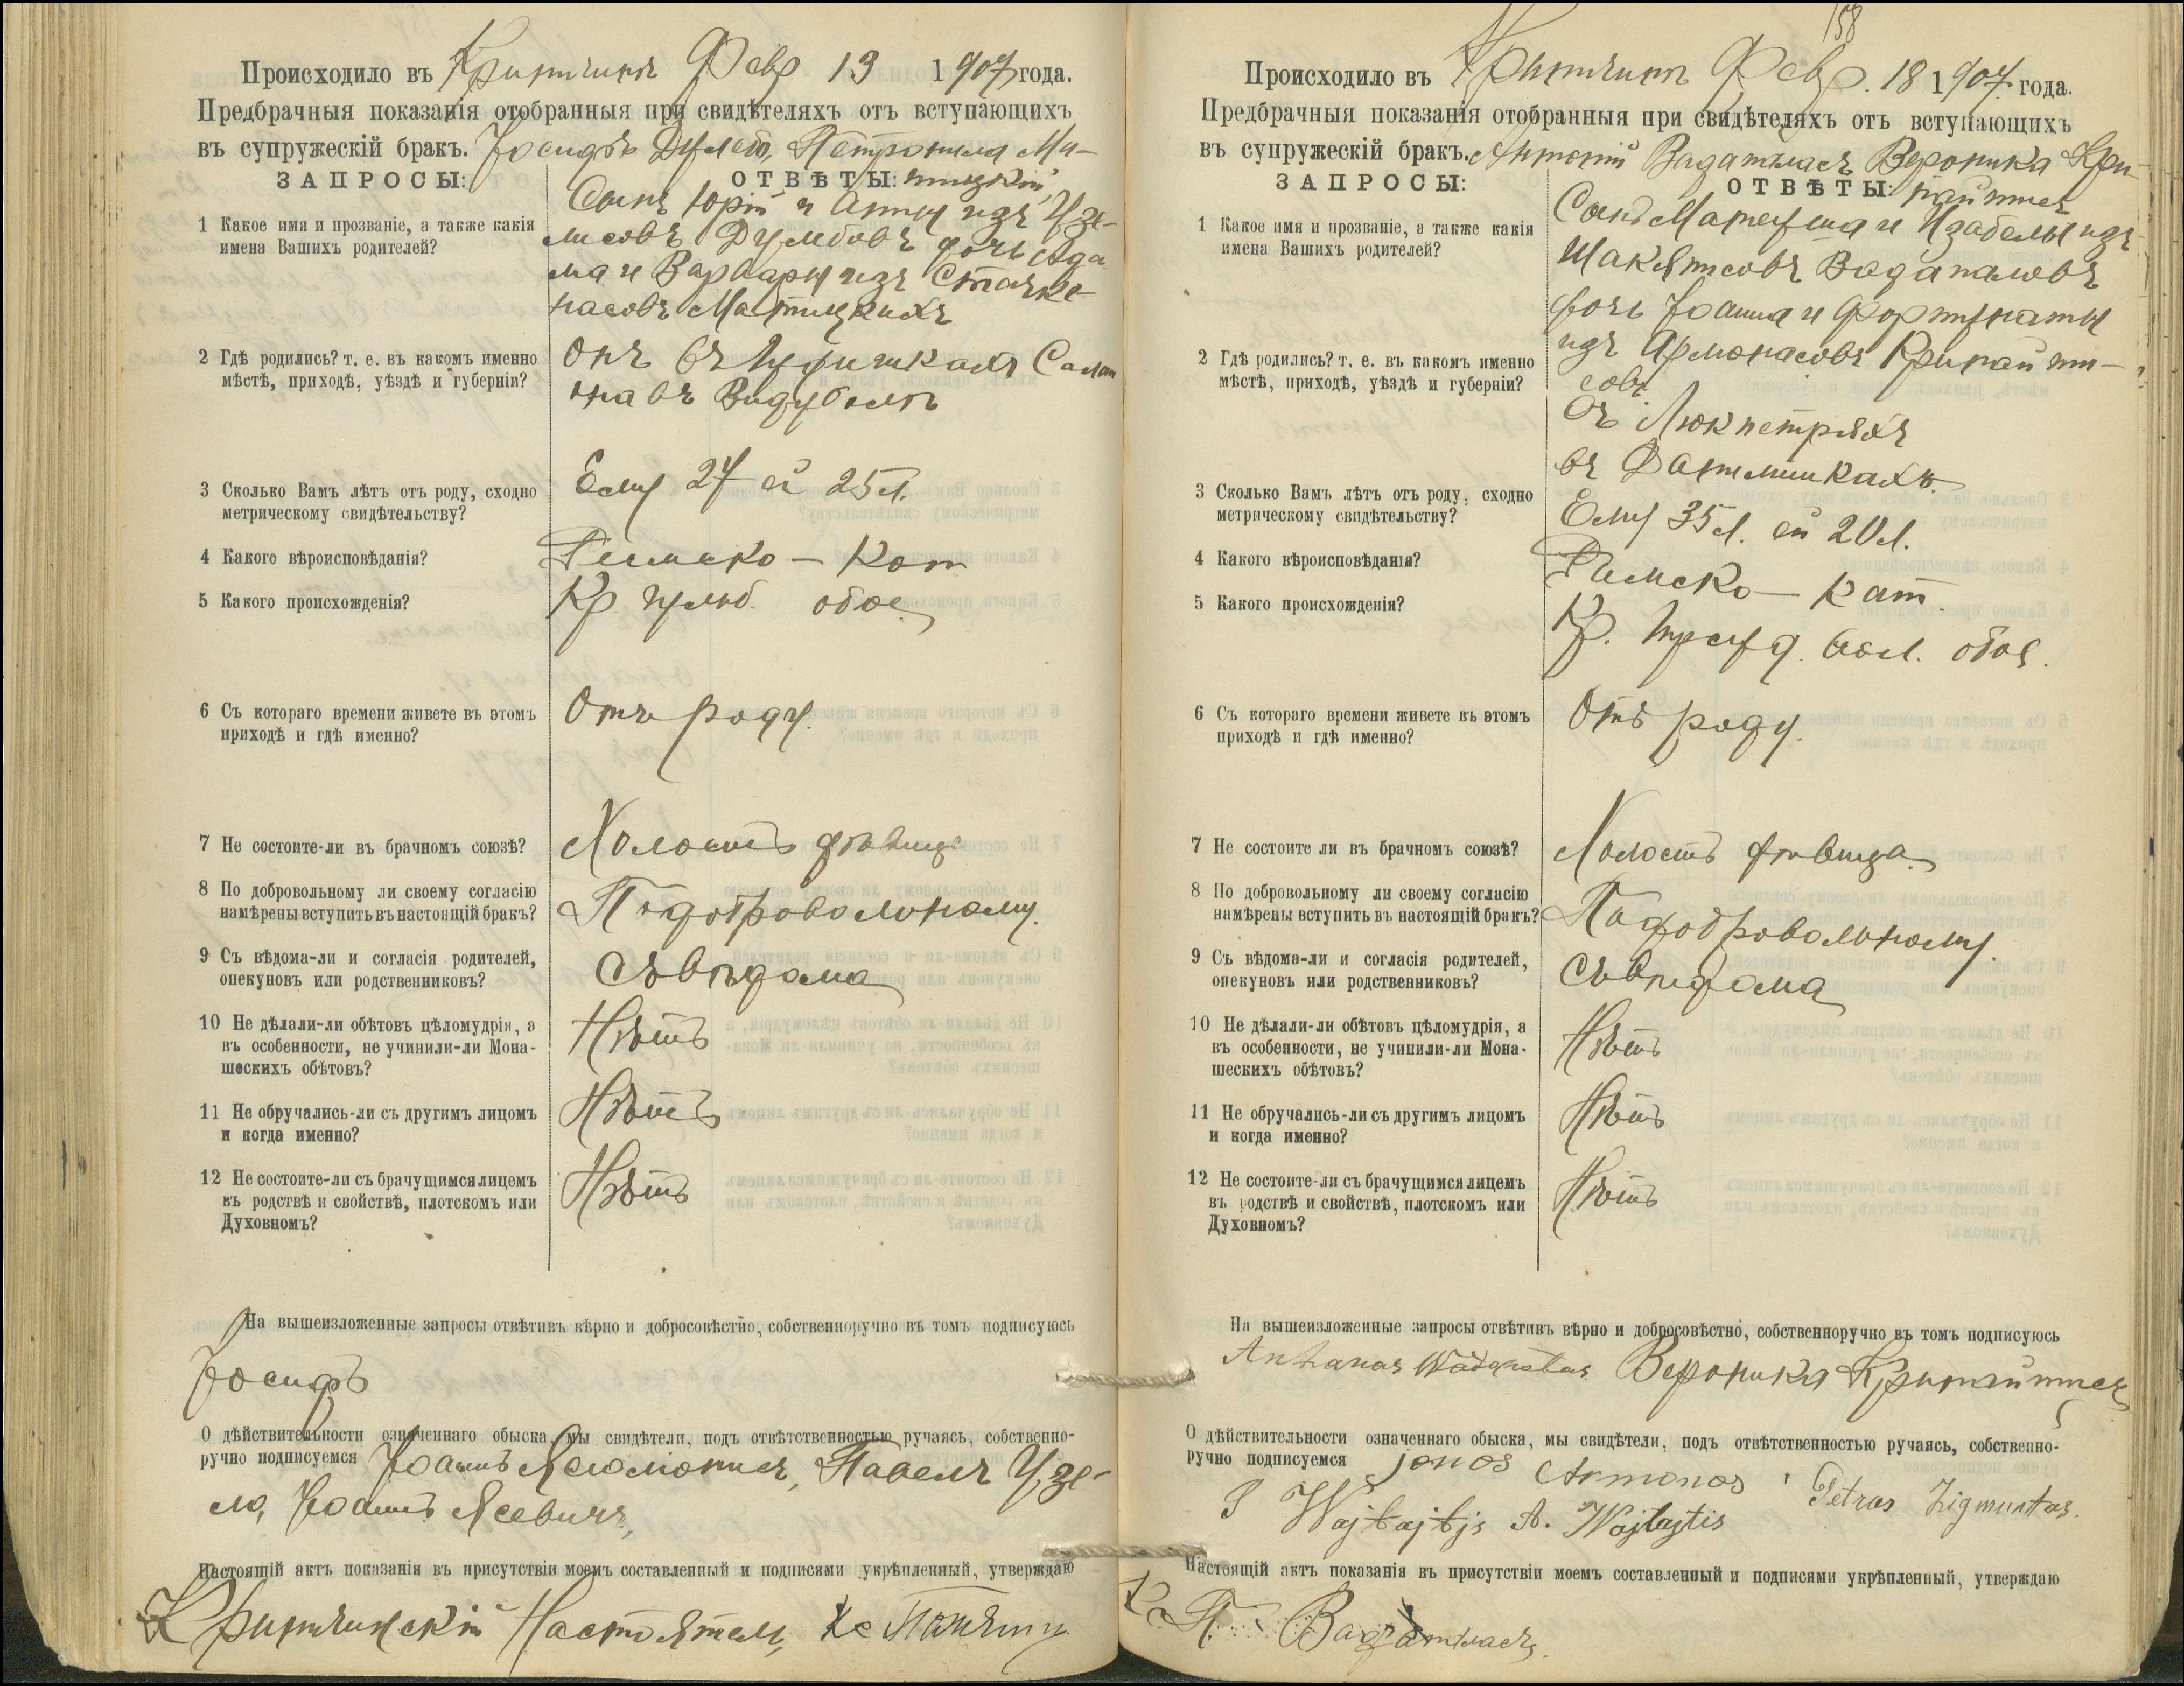 Происходило въ Критчинъ Февр 13 1907 года.
Предбрачныя показанія отобранныя при свидѣтеляхъ отъ вступающихъ
въ супружескій бракъ. Іосифъ Петронила Ма-
ЗАПРОСЫ: ОТВѢТЫ: тицкій
Сынъ Юрій и Анны изъ Узе-
1 Какое имя и прозваніе, а также какія
имена Вашихъ родителей?
лисовъ Думбовъ дочь Ада
ма и Варвары изъ Станке-
насовъ Матицкихъ
2 Гдѣ родились? т. е. въ какомъ именно
мѣстѣ, приходѣ, уѣздѣ и губерніи?
Онъ въ
на въ
3 Сколько Вамъ лѣтъ отъ роду, сходно
метрическому свидѣтельству?
Ему 27 ей 25 л.
4 Какого вѣроисповѣданія?
Римско - Кат
5 Какого происхожденія?
Кр. обое.
6 Съ котораго времени живете въ этомъ
приходѣ и гдѣ именно?
Отъ роду.
7 Не состоите-ли въ брачномъ союзѣ?
Холостъ дѣвица
8 По добровольному ли своему согласію
намѣрены вступить въ настоящій бракъ?
По добровольному.
9 Съ вѣдома-ли и согласія родителей,
опекуновъ или родственниковъ?
Съ вѣдома
10 Не дѣлали-ли обѣтовъ цѣломудрія, а
въ особенности, не учинили-ли Мона-
шескихъ обѣтовъ?
Нѣтъ
11 Не обручались-ли съ другимъ лицомъ
и когда именно?
Нѣтъ
12 Не состоите-ли съ брачущимся лицемъ
въ родствѣ и свойствѣ, плотскомъ или
Духовномъ?
Нѣтъ
На вышеизложенные запросы отвѣтивъ вѣрно и добросовѣстно, собственноручно въ томъ подписуюсь
Іосифъ
О дѣйствительности означеннаго обыска, мы свидѣтели, подъ отвѣтственностью ручаясь, собственно-
ручно подписуемся Іоаннъ Павелъ Узе-
ло, Іоаннъ Ясевичъ,
Настоящій актъ показанія въ присутствіи моемъ составленный и подписями укрѣпленный, утверждаю
Критчинскій Настоятель,
158
Происходило въ Критчинъ Февр. 18 1907 года.
Предбрачныя показанія отобранныя при свидѣтеляхъ отъ вступающихъ
въ супружескій бракъ. Антоній Вадапаласъ Вероника Кри-
ЗАПРОСЫ: ОТВѢТЫ: пайтисъ
1 Какое имя и прозваніе, а также какія
имена Вашихъ родителей?
Сынъ Матеуша и Изабелы изъ
Вадапаловъ
дочь Іоанна и Фортунаты
изъ Армонасовъ Крипайти-
совъ
2 Гдѣ родились? т. е. въ какомъ именно
мѣстѣ, приходѣ, уѣздѣ и губерніи?
Онъ Люкпетряхъ
въ
3 Сколько Вамъ лѣтъ отъ роду, сходно
метрическому свидѣтельству?
Ему 35 л. ей 20 л.
4 Какого вѣроисповѣданія?
Римско - Кат.
5 Какого происхожденія?
Кр. обое.
6 Съ котораго времени живете въ этомъ
приходѣ и гдѣ именно?
Отъ роду.
7 Не состоите ли въ брачномъ союзѣ?
Холостъ дѣвица.
8 По добровольному ли своему согласію
намѣрены вступить въ настоящій бракъ?
По добровольному.
9 Съ вѣдома-ли и согласія родителей,
опекуновъ или родственниковъ?
Съ вѣдома
10 Не дѣлали-ли обѣтовъ цѣломудрія, а
въ особенности, не учинили-ли Мона-
шескихъ обѣтовъ?
Нѣтъ
11 Не обручались-ли съ другимъ лицомъ
и когда именно?
Нѣтъ
12 Не состоите-ли съ брачущимся лицемъ
въ родствѣ и свойствѣ, плотскомъ или
Духовномъ?
Нѣтъ
На вышеизложенные запросы отвѣтивъ вѣрно и добросовѣстно, собственноручно въ томъ подписуюсь
Antanas Wadapalas Вероника Крипайтисъ
О дѣйствительности означеннаго обыска, мы свидѣтели, подъ отвѣтственностью ручаясь, собственно-
ручно подписуемся jonos Armonos, Petras Zigmuntas.
Wajtajtjs A. Wajtajtis
Настоящій актъ показанія въ присутствіи моемъ составленный и подписями укрѣпленный, утверждаю